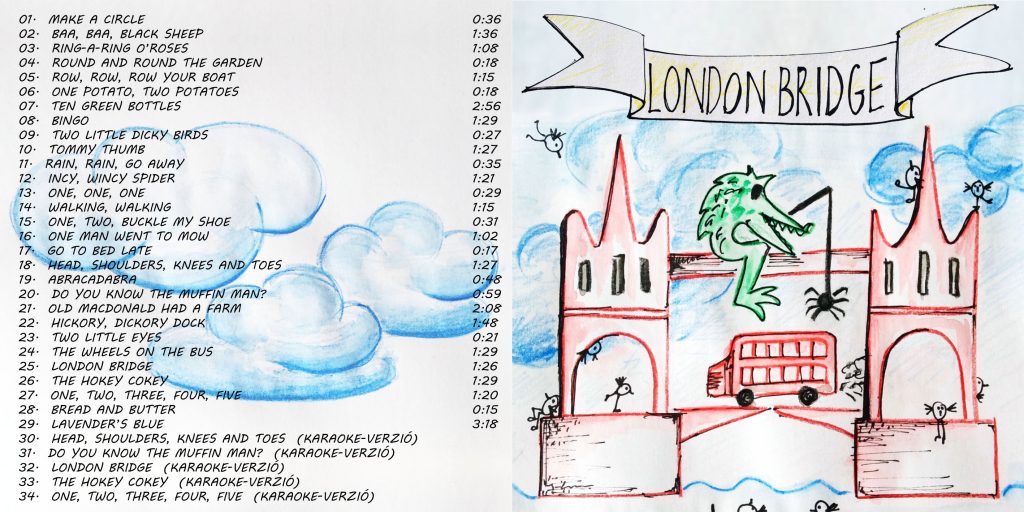 01. MAKE A CIRCLE 0:36
02. BAA, BAA, BLACK SHEEP 1:36
03. RING-A-RING O'ROSES 1:08
04. ROUND AND ROUND THE GARDEN 0:18
05. ROW, ROW, ROW YOUR BOAT 1:15
06. ONE POTATO, TWO POTATOES 0:18
07. TEN GREEN BOTTLES 2:56
08. BINGO 1:29
09. TWO LITTLE DICKY BIRDS 0:27
10. TOMMY THUMB 1:27
11. RAIN, RAIN, GO AWAY 0:35
12. INCY, WINCY SPIDER 1:21
13. ONE, ONE, ONE 0:29
14. WALKING, WALKING 1:15
15. ONE, TWO, BUCKLE MY SHOE 0:31
16. ONE MAN WENT TO MOW 1:02
17. GO TO BED LATE 0:17
18. HEAD, SHOULDERS, KNEES AND TOES 1:27
19. ABRACADABRA 0:48
20. DO YOU KNOW THE MUFFIN MAN? 0:59
21. OLD MACDONALD HAD A FARM 2:08
22. HICKORY, DICKORY DOCK 1:48
23. TWO LITTLE EYES 0:21
24. THE WHEELS ON THE BUS 1:29
25. LONDON BRIDGE 1:26
26. THE HOKEY COKEY 1:29
27. ONE, TWO, THREE, FOUR, FIVE 1:20
28. BREAD AND BUTTER 0:15
29. LAVENDER'S BLUE 3:18
30. HEAD, SHOULDERS, KNEES AND TOES (KARAOKE-VERZIÓ)
31. DO YOU KNOW THE MUFFIN MAN? (KARAOKE-VERZIÓ)
32. LONDON BRIDGE (KARAOKE-VERZIÓ)
33. THE HOKEY COKEY (KARAOKE-VERZIÓ)
34. ONE, TWO, THREE, FOUR, FIVE (KARAOKE-VERZIÓ)
LONDON BRIDGE